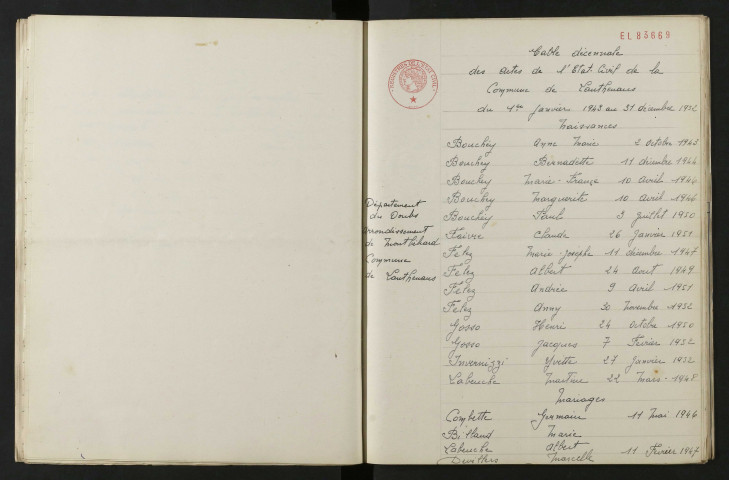 EL 83669
Table décennale
des actes de l'Etat-Civil de la
Commune de Lanthenans
du 1er Janvier 1943 au 31 décembre 1952
Naissances
Bouchey Anne Marie 2 octobre 1943
Bouchey Bernadette 11 décembre 1944
Bouchey Marie-France 10 avril 1946
Bouchey Marguerite 10 avril 1946
Bouchey Paul 3 juillet 1950
Faivre Claude 26 janvier 1951
Félez Marie-Josèphe 11 décembre 1947
Félez Albert 24 août 1949
Félez Andrée 9 avril 1951
Félez Anny 30 novembre 1952
Gosso Henri 24 octobre 1950
Gosso Jacques 7 Février 1952
Invernizzi Yvette 27 janvier 1952
Labeuche Martine 22 Mars 1948
Mariages
Combette Germain 11 mai 1946
Billand Marie
Labeuche Albert 11 Février 1947
Devillers Marcelle
Département
du Doubs
arrondissement
de Montbéliard
Commune
de Lanthenans